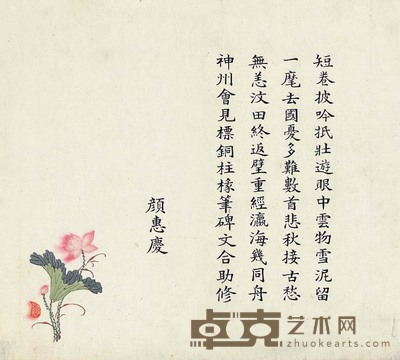 短卷披吟抵壯遊眼中雲物雪泥留
一麾去國憂多難數首悲秋接古愁
無恙汶田終返璧重經瀛海幾同舟
神州會見標銅柱椽筆碑文合助修
顏惠慶
卓克艺术网
zhuokearts.com